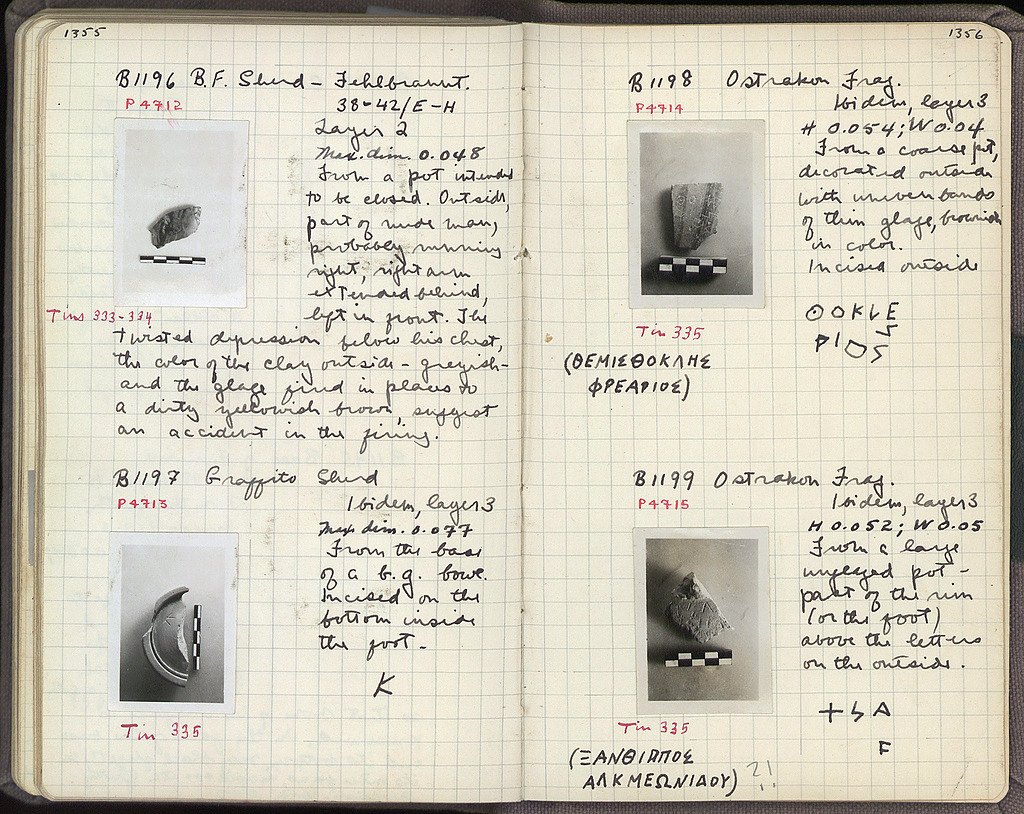 1355
B1196 B.F. Sherd - Fehlbrannt.
P 4712
38-42/E-H
Layer 2
Max. dim. 0.048
From a pot intended
to be closed. Outside,
part of nude man,
probably running
right, right arm
extended behind,
left in front. The
Tins 333-334
twisted depression below his chest,
the color of the clay outside - greyish -
and the glaze fired in places to
a dirty yellowish brown, suggest
an accident in the firing.
B1197 Graffito Sherd
P4713
Ibidem, layer 3
Max. dim. 0.077
From the base
of a b.g. bowl.
Incised on the
bottom inside
the foot -
K
Tin 335
1356
B1198 Ostrakon Frag.
P4714
Ibidem, layer 3
H 0.054; W 0.04
From a coarse pot,
decorated outside
with uneven bands
of thin glaze, brownish
in color.
Incised outside
ΘΟΚLΕ
Tin 335
(ΘΕΜΙΣΘΟΚΛΗΣ
ΦΡΕΑΡΙΟΣ)
B1199 Ostrakon Frag.
P4715
Ibidem, layer 3
H 0.052; W 0.05
From a large
unglazed pot -
part of the rim
(or the foot)
above the letters
on the outside.
+ϟA
F
Tin 335
(ΞΑΝΘΙΠΠΟΣ
ΑΛΚΜΕΩΝΙΔΟΥ) ?!